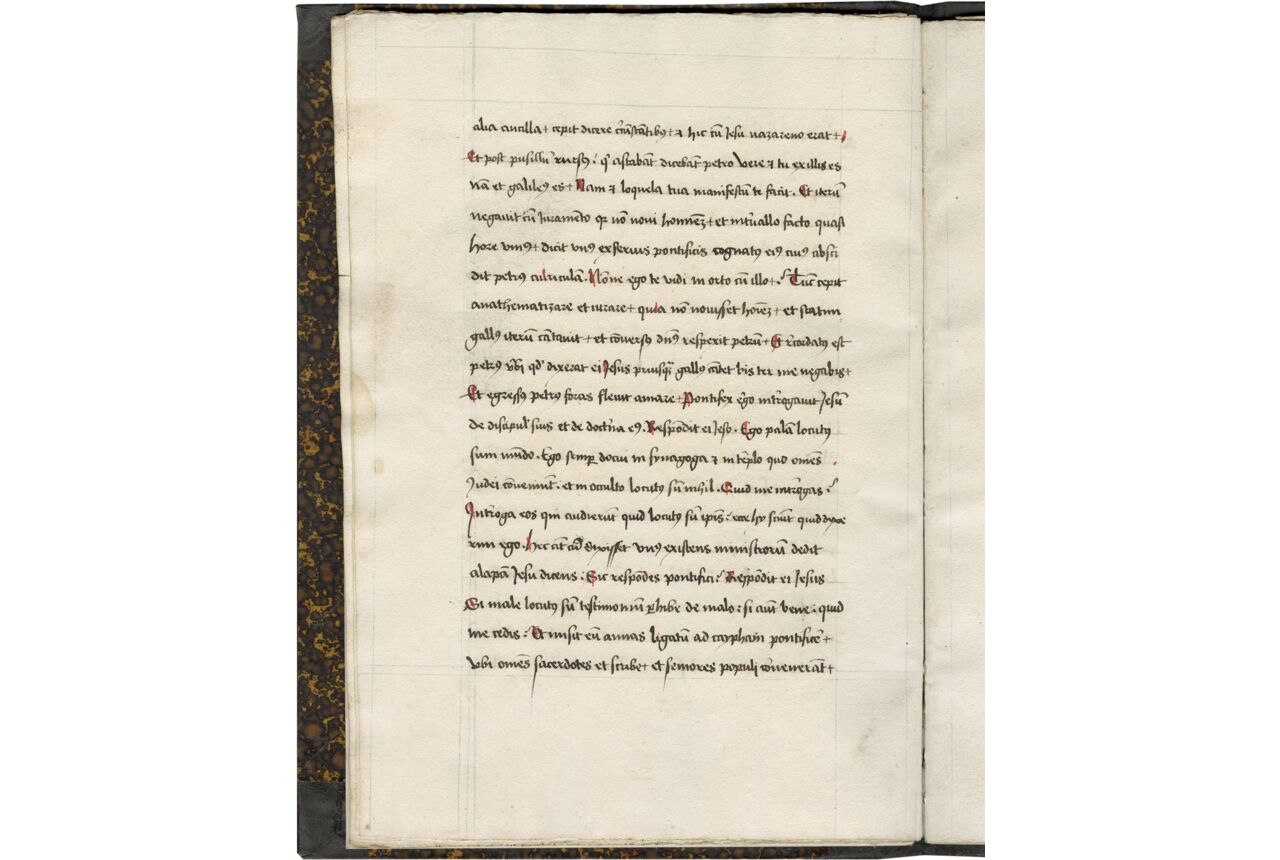 alia ancilla + cepit dicere circũstãtibꝰ + ⁊ hic cũ Jesu nazareno erat +
Et post pusillũ rursꝰ : qͥ astabãt dicebãt petro vere ⁊ tu ex illis es
nã et galileꝰ es + Nam ⁊ loquela tua manifestũ te facit . Et iterũ
negauit cũ Juramẽto qꝛ nõ noui hominẽ + et intͥuallo facto quasi
hore vniꝰ + dicit vnꝰ ex seruis pontificis cognatꝰ eiꝰ cuiꝰ absci
dit petrꝰ auriculã . Nõne ego te vidi in orto cũ illo + Tũc cepit
anathematizare et iurare + quia nõ nouisset hoiẽz + et statim
gallꝰ iterũ cãtauit + et cõuersꝰ dñs respexit petrũ + Et rͨcordatꝰ est
petrꝰ vͥbi qd' dixerat ei Jesus priusqͣ gallꝰ cãtet bis ter me negabis +
Et egressꝰ petrꝰ foras fleuit amare + Pontifex ergo introgauit Jesũ
de discipul' suis et de doctrina eiꝰ . Respõdit ei Jesꝰ . Ego palã locutꝰ
sum mũdo . Ego semꝑ docui in synagoga ⁊ in tẽplo quo omẽs
Judei cõueniũt . et in occulto locutꝰ sũ nihil . Quid me introgas
Introga eos qui audierũt quid locutꝰ sũ ipsis : ecce hij sciũt quid dixe
rim ego . Hec aũt cũ dixisset vnꝰ existens ministrorũ dedit
alapã Jesu dicens : Sic respõdes pontifici Respõdit ei Jesus
Si male locutꝰ sũ testimoniũ ꝑhibe de malo : si aũt bene : quid
me cedis : Et misit eũ annas ligatũ ad caypham pontificẽ +
vbi omẽs sacerdotes et scribe + et seniores populi cõuenerãt +